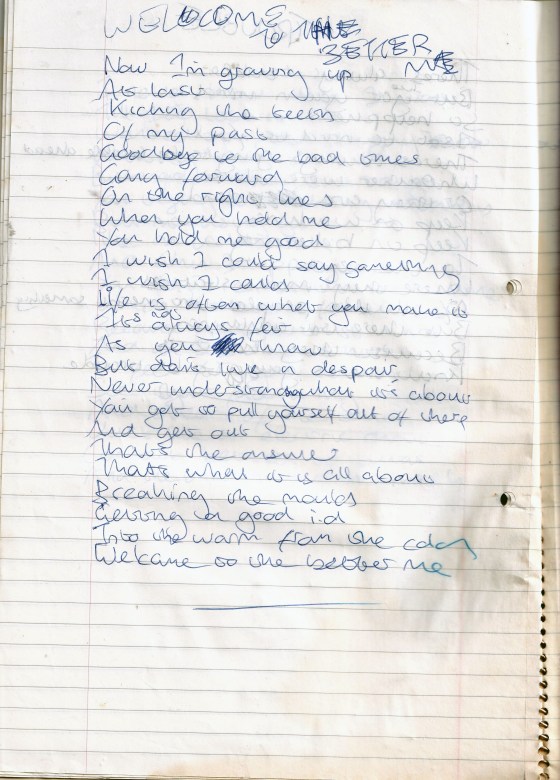 WELCOME
to THE
BETTER
ME
Now I'm growing up
At last
Kicking the teeth
Of my past
Goodbye to the bad times
Going forward
On the right lines
When you hold me
You hold me good
I wish I could say something
I wish I could
Life is often what you make it
It's not always fair
As you know
But don't live in despair
Never understanding what it's about
You got to pull yourself out of there
And get out
That's the answer
That's what it is all about
Breaking the moulds
Getting a good i.d
Into the warm from the cold
Welcome to the better me